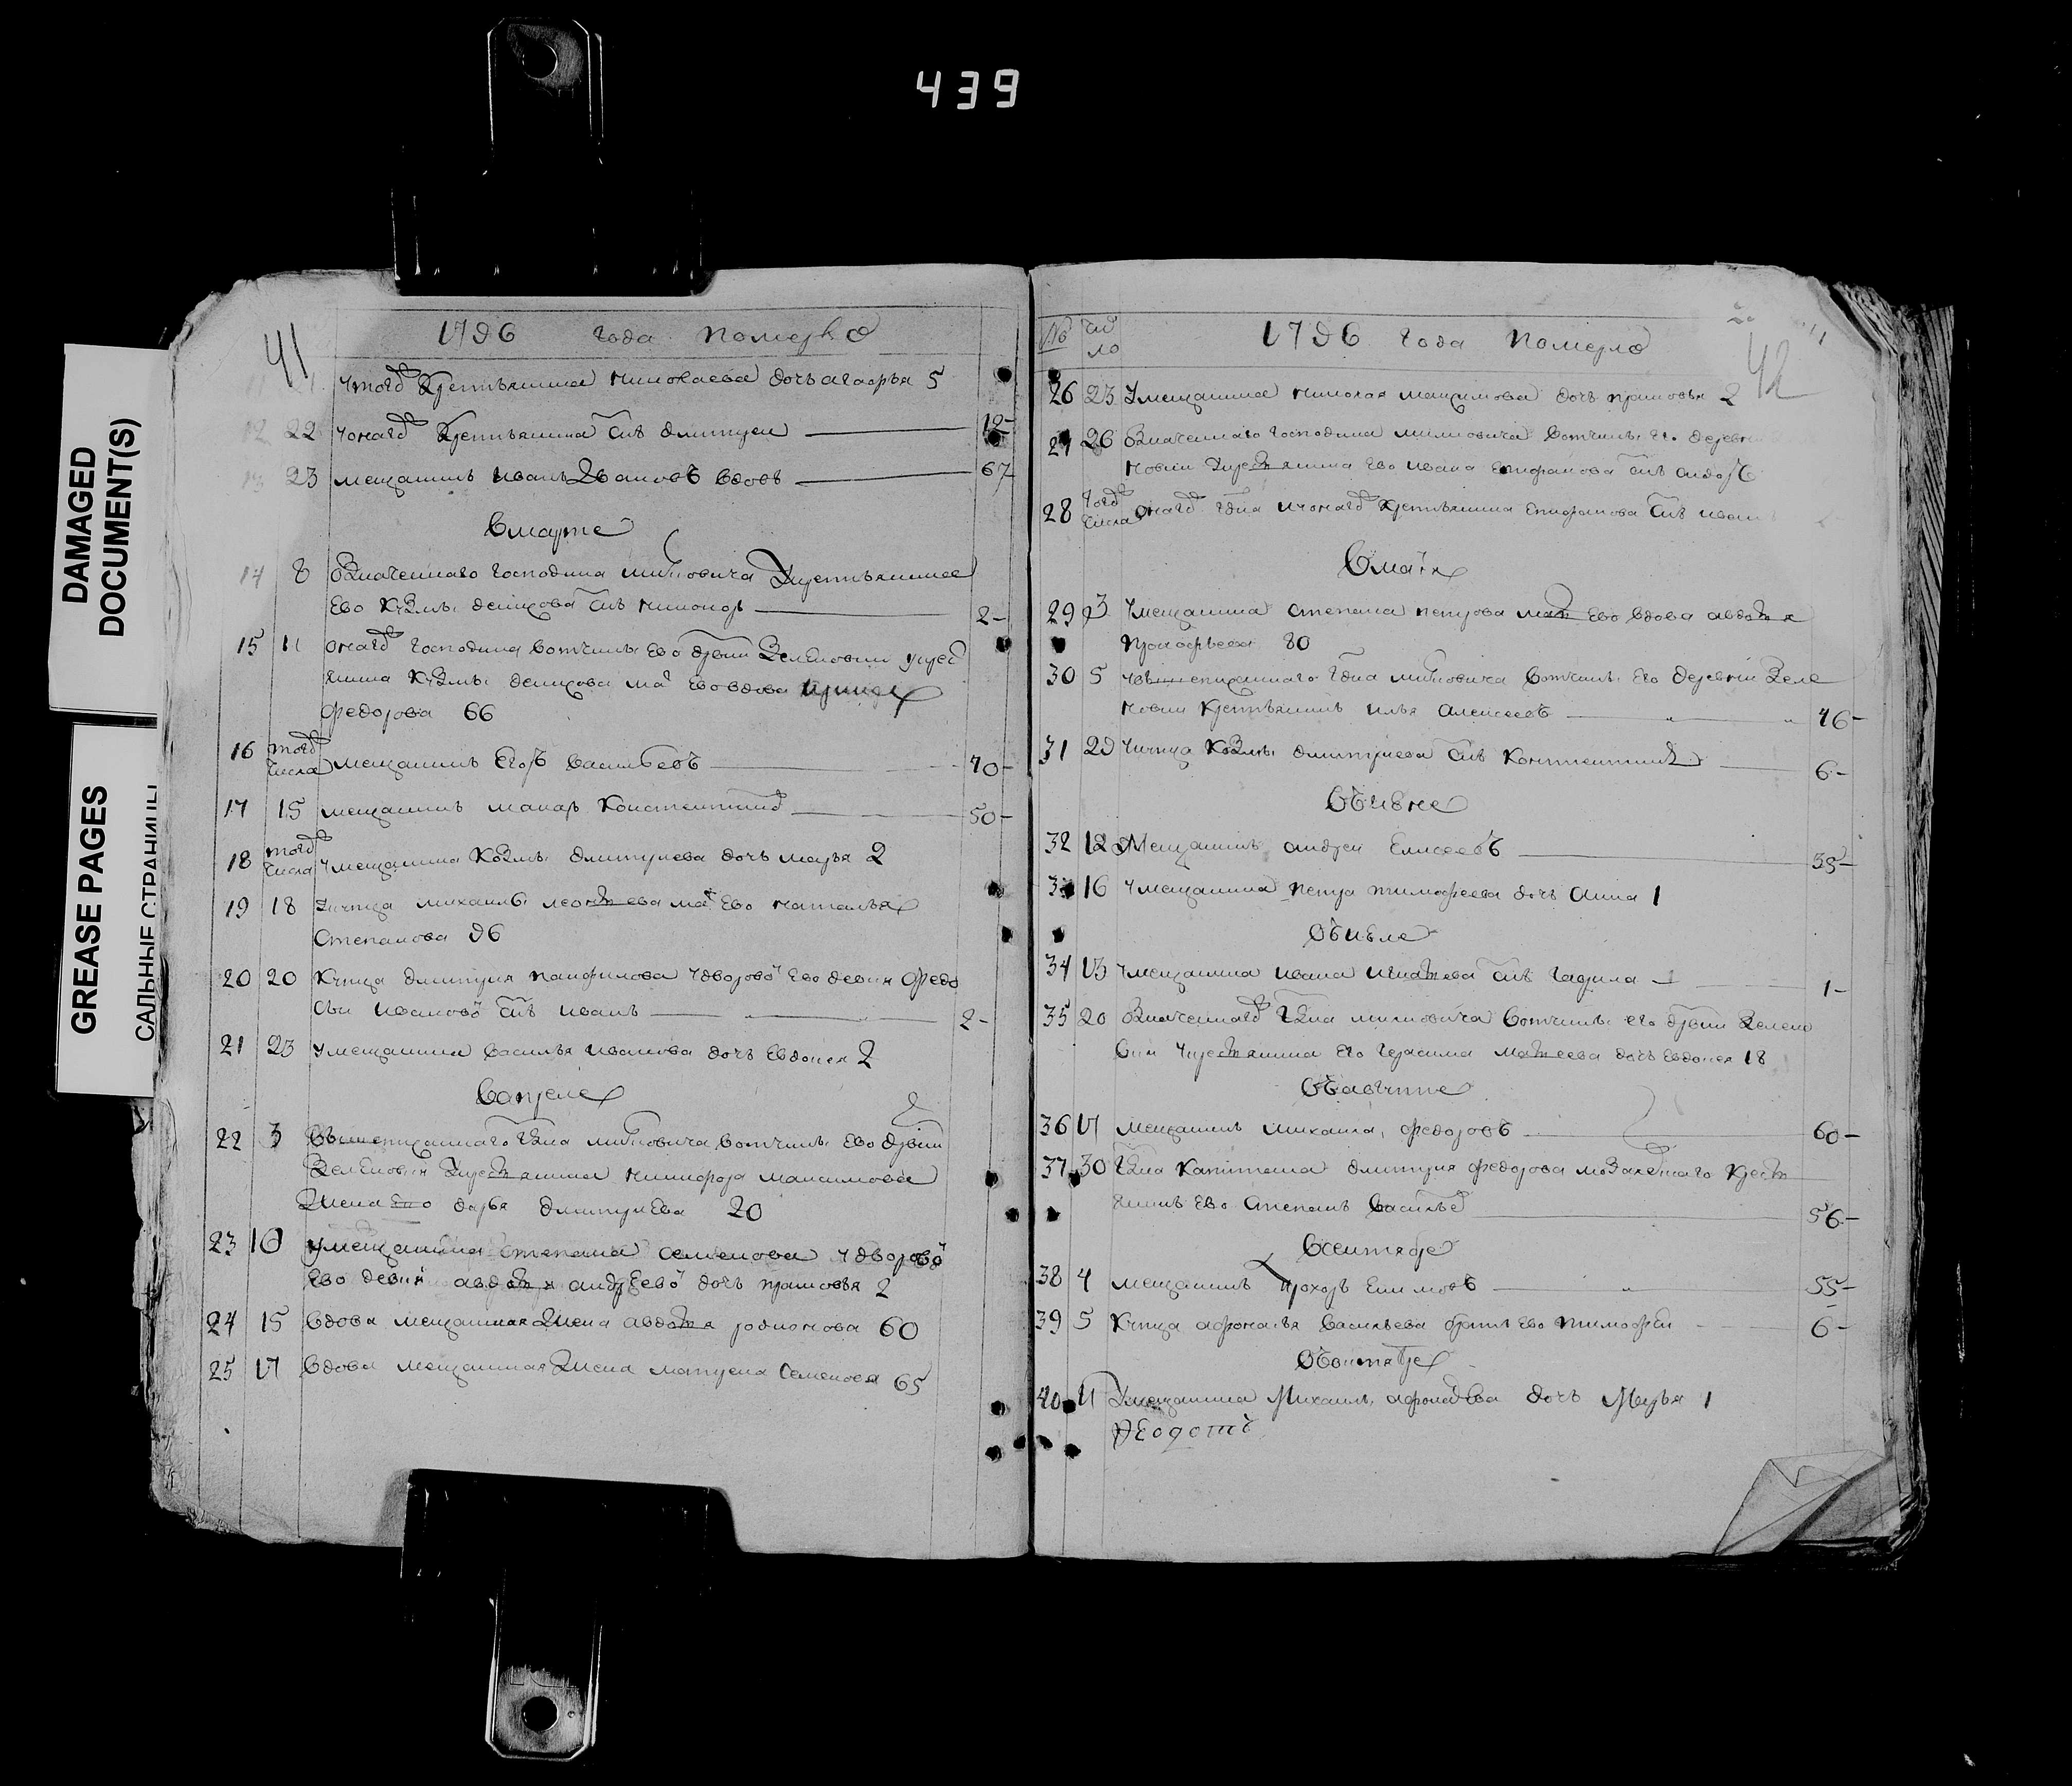 439
DAMAGED
DOCUMENT(S)
GREASE PAGES
САЛЬНЫЕ СТРАНИЦЫ
41
1796 года померло
11 21 утогѡ крестьянина николаева дочь агафья 5
12 22 уонагѡ крестьянина снъ дмитреи 12
13 23 мещанинъ иванъ Ивановъ вдовъ 67
Вмарте
14 8 означеннаго господина милновича крестьянина
Ево кузмы денисова снъ никоноръ 2
15 11 онагѡ господина вотчины Ево дрвни Зеленовки укрес
янина кузмы денисова ма Ево вдова
федорова 66
16 тогѡ числа мещанинъ Егоръ васильевъ 70
17 15 мещанинъ макаръ константиновъ 50
18 тогѡ числа умещанина козмы дмитриева дочь марья 2
19 18 укупца михаилы леонтьева ма ево наталья
Степанова 96
20 20 купца дмитрия панфилова удворово Ево девки федо
сьи ивановой снъ иванъ 2
21 23 умещанина василья иванова дочь Евдокея 2
Вапреле
22 3 вышеписаннаго гдна милновича вотчины Ево дрвни
Зеленовки крестьянина никифора максимова
жена Ево дарья дмитриева 20
23 10 умещанина степана семенова удворово
Ево девки авдотьи андреево дочь прасковья 2
24 15 вдова мещанская жена авдотья родионова 60
25 17 вдова мещанская жена матрена семенова 65
42
№ число 1796 года померло
26 23 умещанина николая максимова дочь прасковья 2
27 26 означеннаго господина милновича вотчины его деревни
новки крестьянина Ево ивана епифанова снъ
28 тогѡ числа онагѡ гдна иуонагѡ крестьянина епифанова снъ иван
Вмаїя
29 3 умещанина степана петрова мать Ево вдова авдотья
прокофьева 80
30 5 увышеписаннаго гдна милновича вотчины Его деревни Зеле
новки крестьянинъ илья алексеевъ 46
31 29 укупца козмы дмитриева снъ константинъ 6
Въиюне
32 12 Мещанинъ андреи Елисеевъ 35
33 16 умещанина петра тимофеева дочь анна 1
Въиюле
34 13 умещанина ивана игнатьева снъ гаврила 1
35 20 означеннагѡ гдна милновича вотчины его дрвни зелено
вки укрестьянина Его герасима матвеева дочь евдокея 18
Въавгусте
36 17 мещанинъ михаила федоровъ 60
37 30 гдна капитана дмитрия федорова крест
янинъ Ево степанъ васильевъ 56
Всентябре
38 4 мещанинъ прохоръ Екимовъ 55
39 5 купца афонасья васильева братъ ево тимофеи 6
Въоктябре
40 11 умещанина Михаилы афонасьева дочь Марья 1
Ѳеодотъ